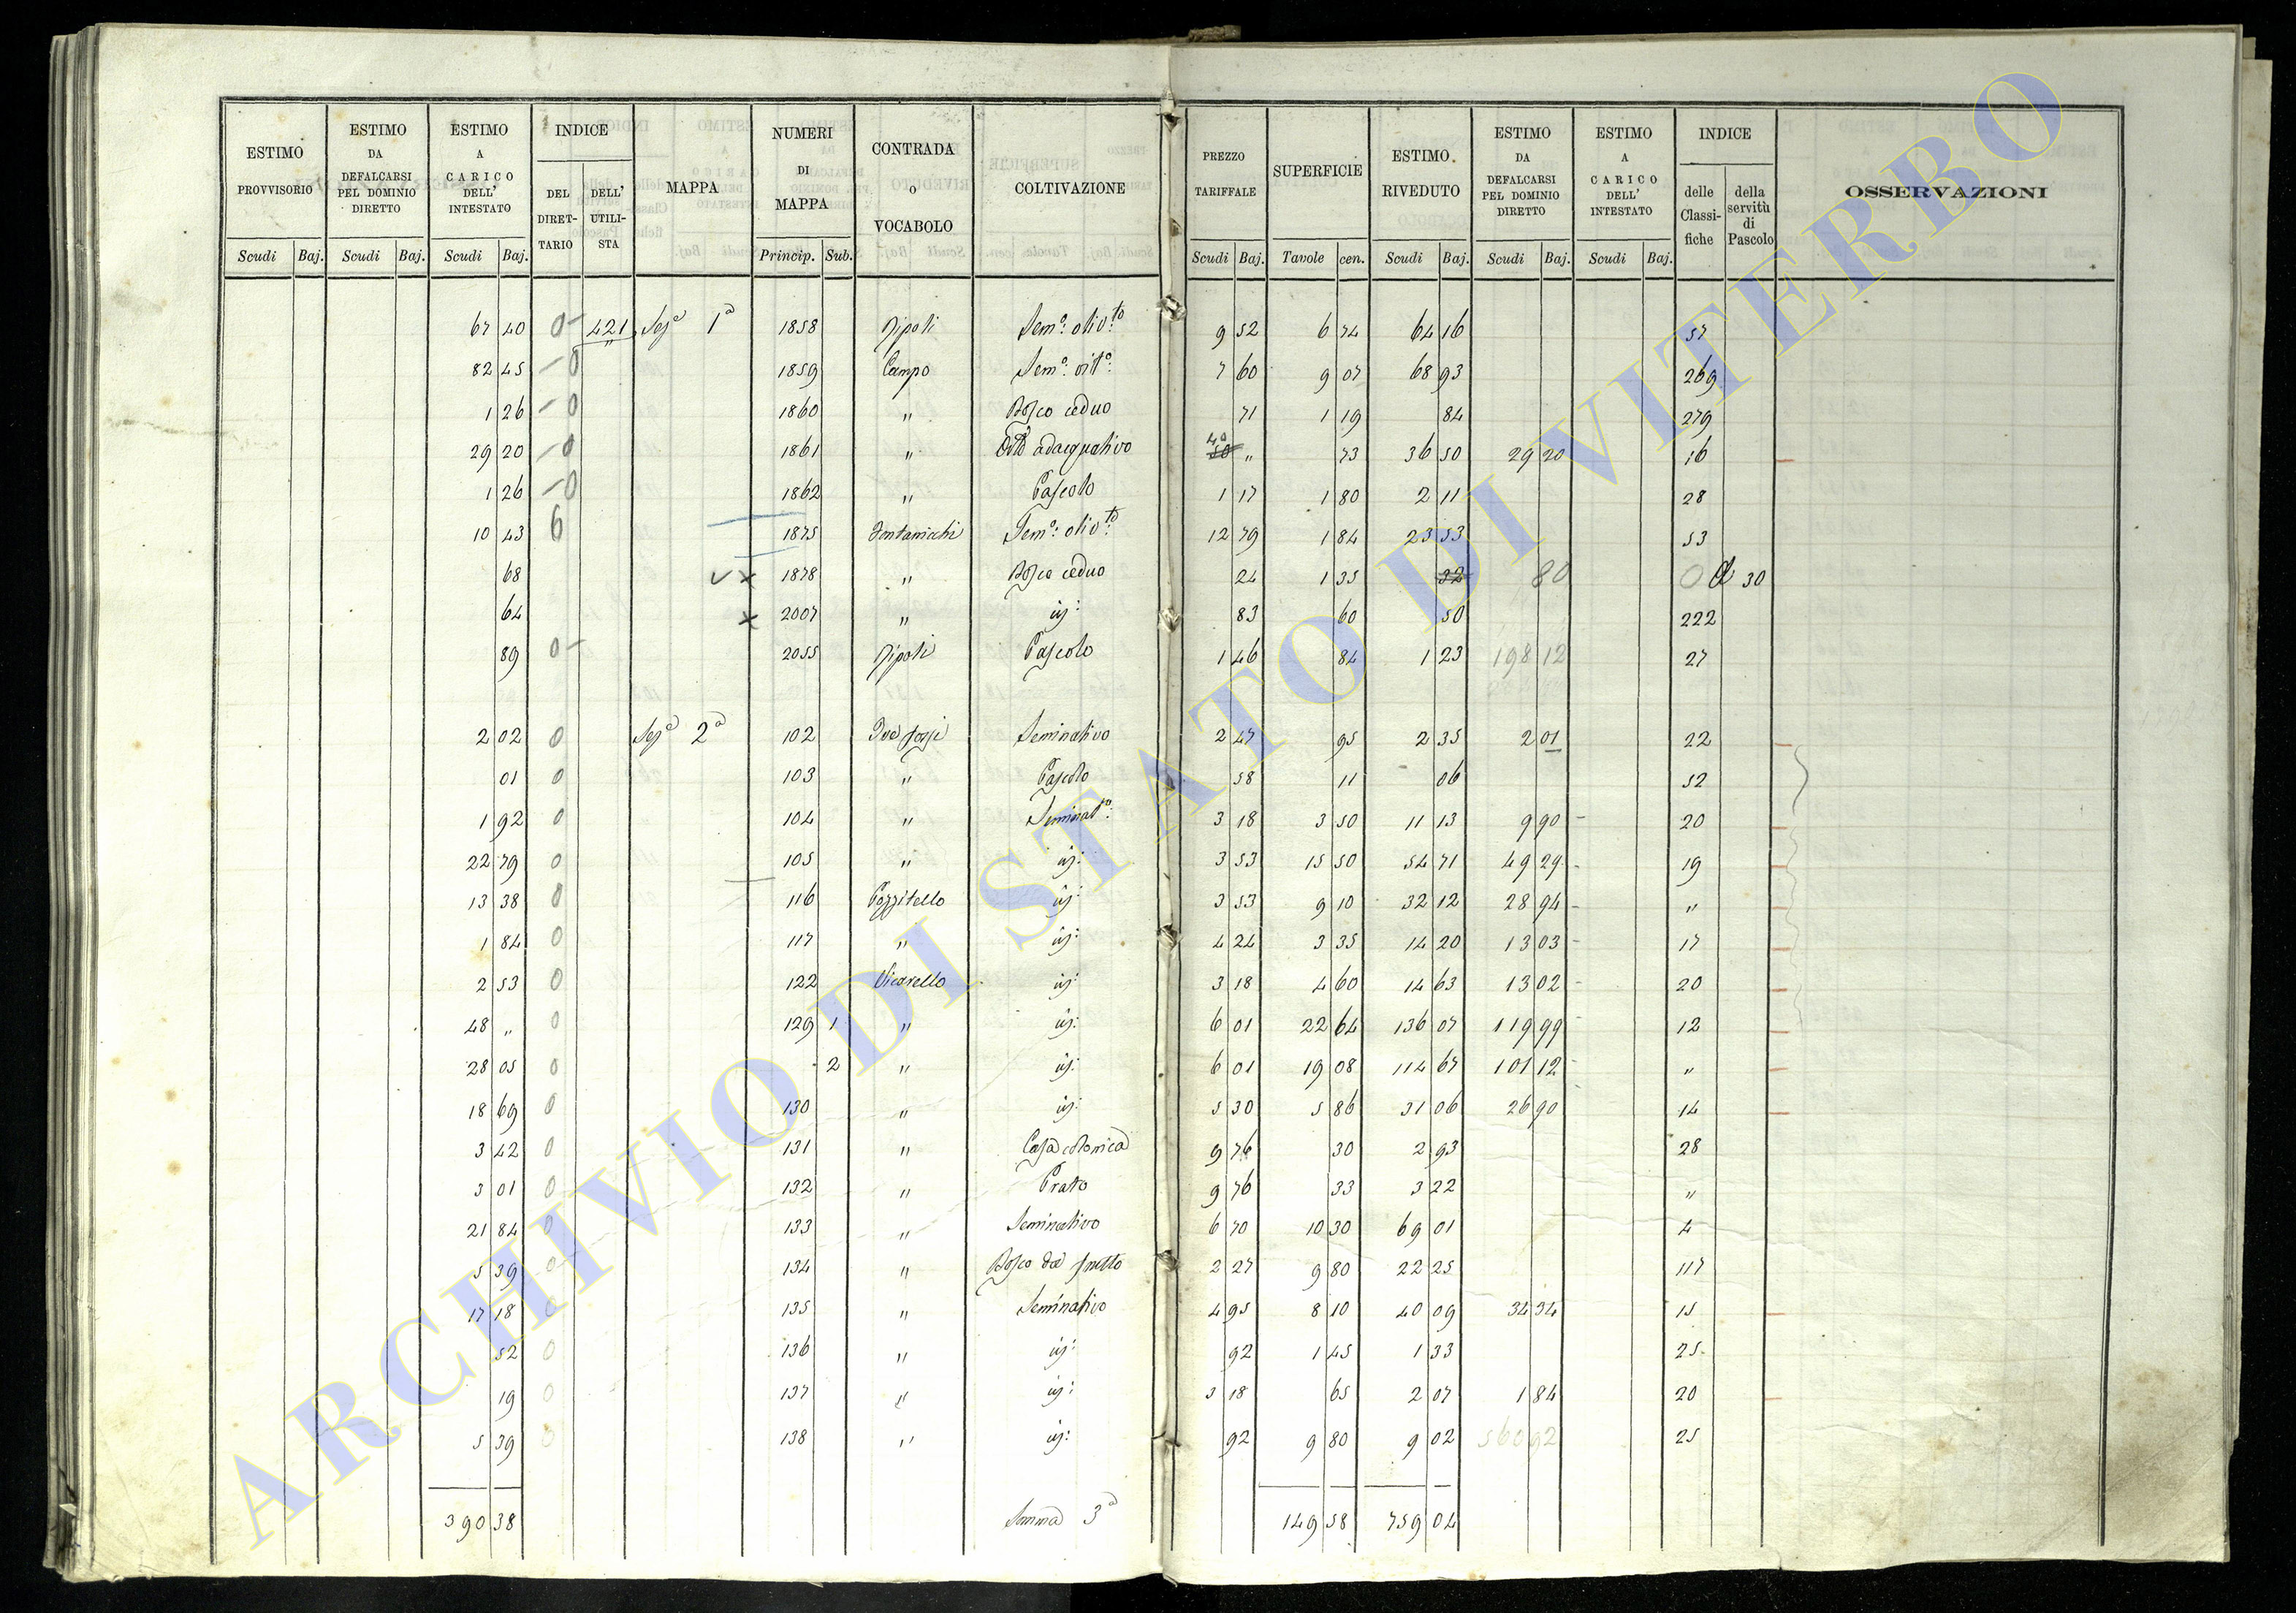 ESTIMO PROVVISORIO Scudi Baj. ESTIMO DA DEFALCARSI PEL DOMINIO DIRETTO Scudi Baj. ESTIMO A CARICO DELL' INTESTATO Scudi Baj. INDICE DEL DIRET-TARIO DELL' UTILI-STA MAPPA NUMERI DI MAPPA Princip. Sub. CONTRADA O VOCABOLO COLTIVAZIONE PREZZO TARIFFALE Scudi Baj. SUPERFICIE Tavole cen. ESTIMO RIVEDUTO Scudi Baj. ESTIMO DA DEFALCARSI PEL DOMINIO DIRETTO Scudi Baj. ESTIMO A CARICO DELL' INTESTATO Scudi Baj. INDICE delle Classi-fiche della servitù di Pascolo OSSERVAZIONI
67 40 0 421 Sez.a 1a 1858 Ripoli Sem.o oliv.to 9 52 6 74 64 16 57
82 45 0 " 1859 Campo Sem.o vit.o 7 60 9 07 68 93 269
1 26 0 1860 " Bosco ceduo 71 1 19 84 279
29 20 0 1861 " Orto adacquativo 40 50 " 73 36 50 29 20 16
1 26 0 1862 " Pascolo 1 17 1 80 2 11 28
10 43 6 1875 Sem.o oliv.to 12 79 1 84 23 53 53
68 x 1878 " Bosco ceduo 24 1 35 32 80 0 30
64 x 2007 " id: 83 60 50 222
89 0 2055 Ripoli Pascolo 1 46 84 1 23 198 12 27
2 02 0 Sez.a 2a 102 Due fossi Seminativo 2 47 95 2 35 2 01 22
01 0 103 " Pascolo 58 11 06 52
1 92 0 104 " Seminat.o 3 18 3 50 11 13 9 90 20
22 79 0 105 " id: 3 53 15 50 54 71 49 29 19
13 38 0 116 Pozzitello id: 3 53 9 10 32 12 28 94 "
1 84 0 117 " id: 4 24 3 35 14 20 13 03 17
2 53 0 122 Vicarello id: 3 18 4 60 14 63 13 02 20
48 " 0 129 1 " id: 6 01 22 64 136 07 119 99 12
28 05 0 2 " id: 6 01 19 08 114 67 101 12 "
18 69 0 130 " id: 5 30 5 86 31 06 26 90 14
3 42 0 131 " Casa colonica 9 76 30 2 93 28
3 01 0 132 " Prato 9 76 33 3 22 "
21 84 0 133 " Seminativo 6 70 10 30 69 01 4
5 39 0 134 " Bosco da frutto 2 27 9 80 22 25 117
17 18 0 135 " Seminativo 4 95 8 10 40 09 34 34 15
52 0 136 " id: 92 1 45 1 33 25
19 0 137 " id: 3 18 65 2 07 1 84 20
5 39 0 138 " id: 92 9 80 9 02 560 92 25
390 38 Somma 3a 149 58 759 04
ARCHIVIO DI STATO DI VITERBO